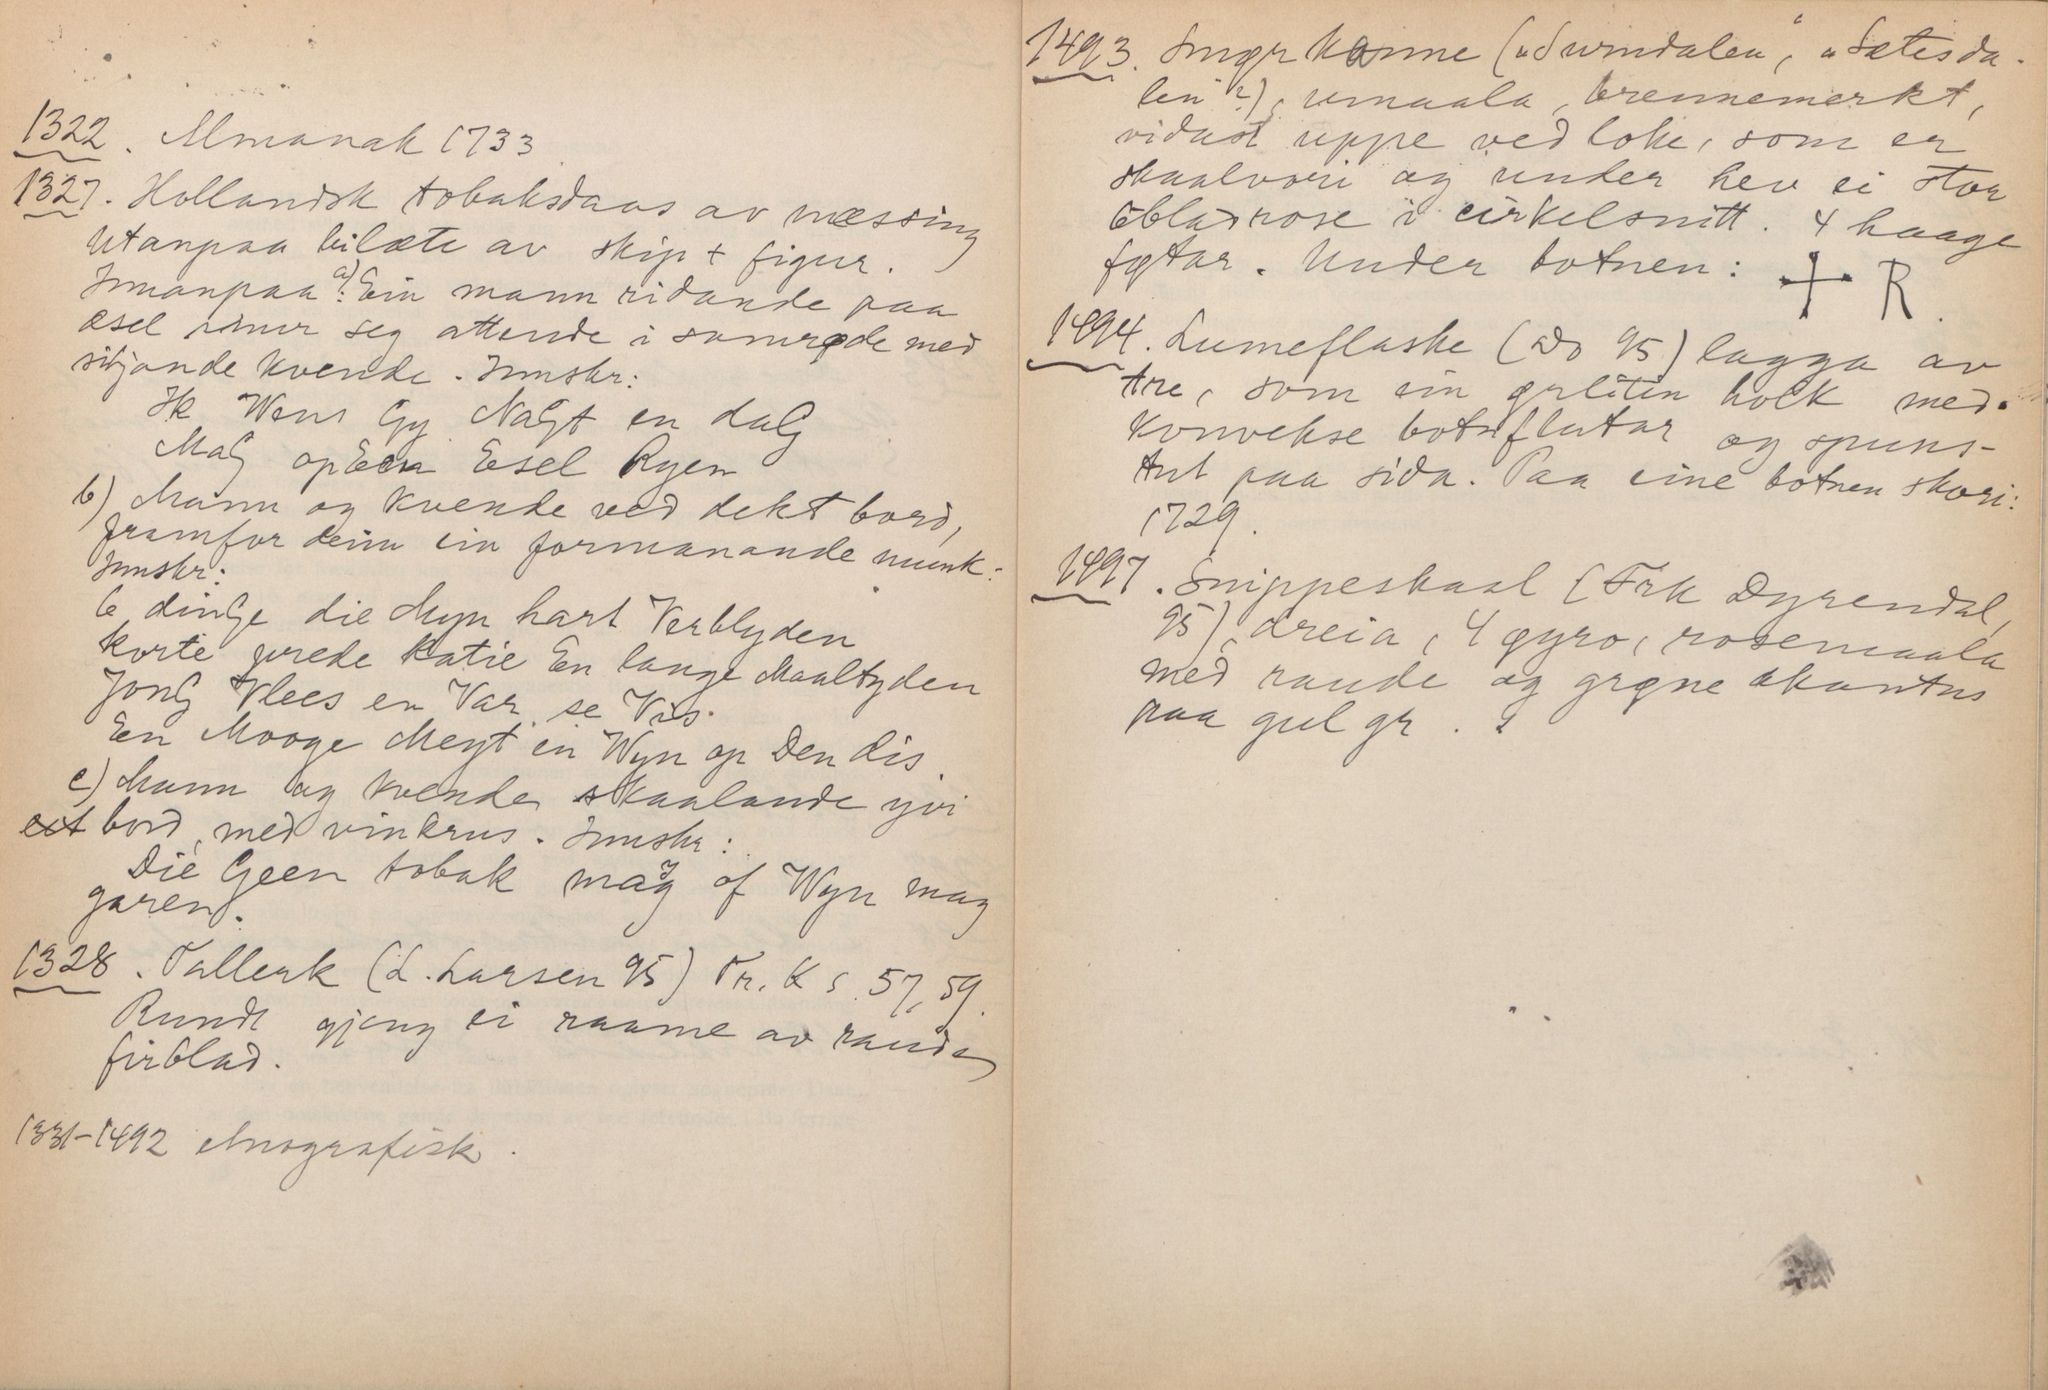 1322. Almanak 1733
1327. Hollandsk tobaksdaas av messing
Utanpaa bilæte av skip + figur.
Innanpaa: a) Ein mann ridande paa
esel snur seg attende i samrøde med
sitjande kvende. Innskr:
Ik Wens Gy NaGt en daG
MaG op Een Esel Ryen
b) Mann og kvende ved dekt bord,
framfor deim ein formanande munk:
Innskr:
6 dinGe die Myn hart Verblyden
korte prede katie En lange Maaltyden
JonG Vlees en Var se Vis.
En Mooge Meyt en Wyn op Den dis.
c) Mann og kvende skaalande yvi
eit bord med vinkrus. Innskr:
Die Geen tobak mag of Wyn mag
garen.
1328. Tallerk (L. Larsen 95) Tr. K s. 57, 59.
Rundt gjeng ei raame av raude
firblad.
1331-1492 etnografisk.
1493. Smørkanne ("Surndalen", "Sætesda-
len"?), umaala, brennemerkt,
vidast uppe ved loke, som er
skaalvori og under hev ei stor
6bladrose i cirkelsnitt. 4 haage
føtar. Under botnen: + R.
1494. Lumeflaske (Do 95) lagga av
tre, som ein ørliten holk med
konvekse botnflatar og spuns-
tut paa sida. Paa eine botnen skori:
1729.
1497. Snippeskaal (Frk Dyrendal,
95), dreia, 4 øyro, rosemaala
med raude og grøne akantus
paa gul gr.